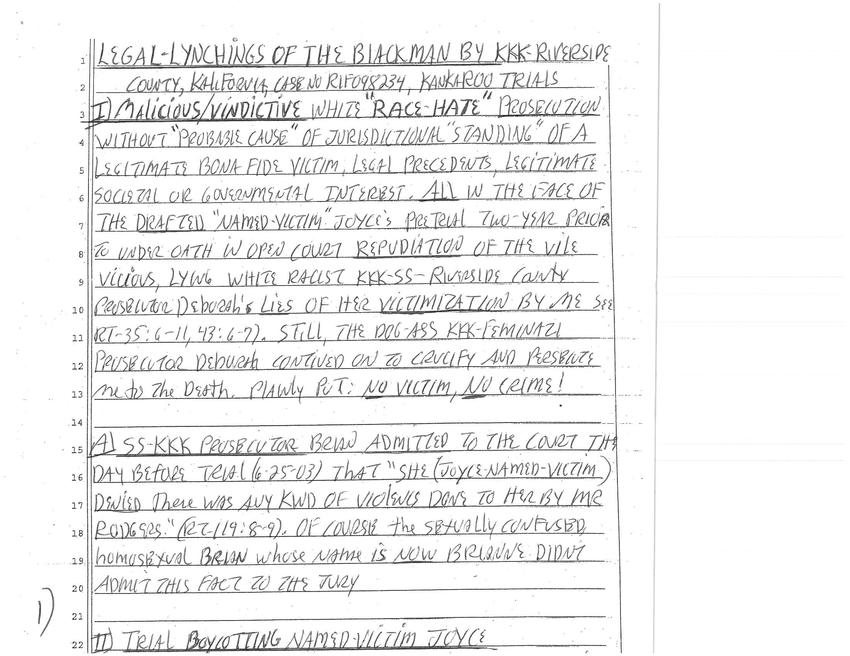 1 LEGAL-LYNCHINGS OF THE BLACKMAN BY KKK-RIVERSIDE
2 COUNTY, KALIFORNIA, CASE NO RIF098234, KANKAROO TRIALS
3 I) MALICIOUS/VINDICTIVE WHITE "RACE-HATE" PROSECUTION
4 WITHOUT "PROBABLE CAUSE" OF JURISDICTIONAL "STANDING" OF A
5 LEGITIMATE BONA FIDE VICTIM, LEGAL PRECEDENTS, LEGITIMATE
6 SOCIETAL OR GOVERNMENTAL INTEREST. ALL IN THE FACE OF
7 THE DRAFTED "NAMED-VICTIM" JOYCE'S PRETRIAL TWO-YEAR PRIOR
8 TO UNDER OATH IN OPEN COURT REPUDIATION OF THE VILE
9 VICIOUS, LYING WHITE RACIST KKK-SS-RIVERSIDE COUNTY
10 PROSECUTOR DEBORAH'S LIES OF HER VICTIMIZATION BY ME SEE
11 RT-35:6-11, 43:6-7). STILL, THE DOG-ASS KKK-FEMINAZI
12 PROSECUTOR DEBORAH CONTINED ON TO CRUCIFY AND PERSECUTE
13 me to The Death. PLAINLY PUT: NO VICTIM, NO CRIME!
14
15 A) SS-KKK PROSECUTOR BRIAN ADMITTED TO THE COURT THE
16 DAY BEFORE TRIAL (6-25-03) THAT "SHE (JOYCE-NAMED-VICTIM)
17 DENIED There WAS ANY KIND OF VIOLENCE DONE TO HER BY MR
18 RODGERS." (RT-119:8-9). OF COURSE the SEXUALLY CONFUSED
19 homosexual BRIAN whose NAME IS NOW BRIANNE DIDNT
20 ADMIT THIS FACT TO THE JURY
21
22 II) TRIAL BOYCOTTING NAMED-VICTIM JOYCE
1)